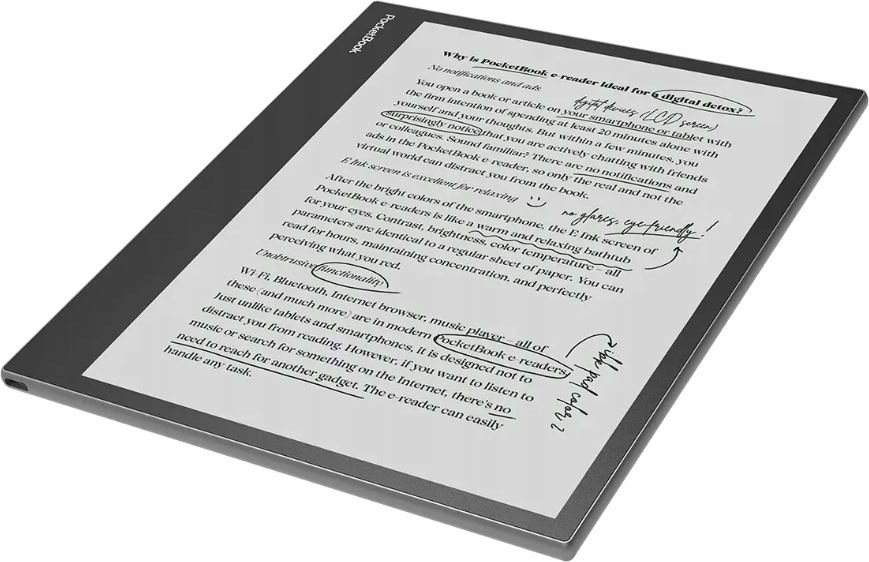 PocketBook
Why Is PocketBook e-reader ideal for a digital detox?
No notifications and ads
digital devices (LCD screen)
You open a book or article on your smartphone or tablet with
the firm intention of spending at least 20 minutes alone with
yourself and your thoughts. But within a few minutes, you
surprisingly notice that you are actively chatting with friends
or colleagues. Sound familiar? There are no notifications and
ads in the PocketBook e-reader, so only the real and not the
virtual world can distract you from the book.
E Ink screen is excellent for relaxing
no glares, eye-friendly!
After the bright colors of the smartphone, the E Ink screen of
PocketBook e-readers is like a warm and relaxing bathtub
for your eyes. Contrast, brightness, color temperature – all
parameters are identical to a regular sheet of paper. You can
read for hours, maintaining concentration, and perfectly
perceiving what you red.
Unobtrusive functionality
Wi-Fi, Bluetooth, Internet browser, music player – all of
these (and much more) are in modern PocketBook e-readers.
Just unlike tablets and smartphones, it is designed not to
distract you from reading. However, if you want to listen to
music or search for something on the Internet, there's no
need to reach for another gadget. The e-reader can easily
handle any task.
pad color 2